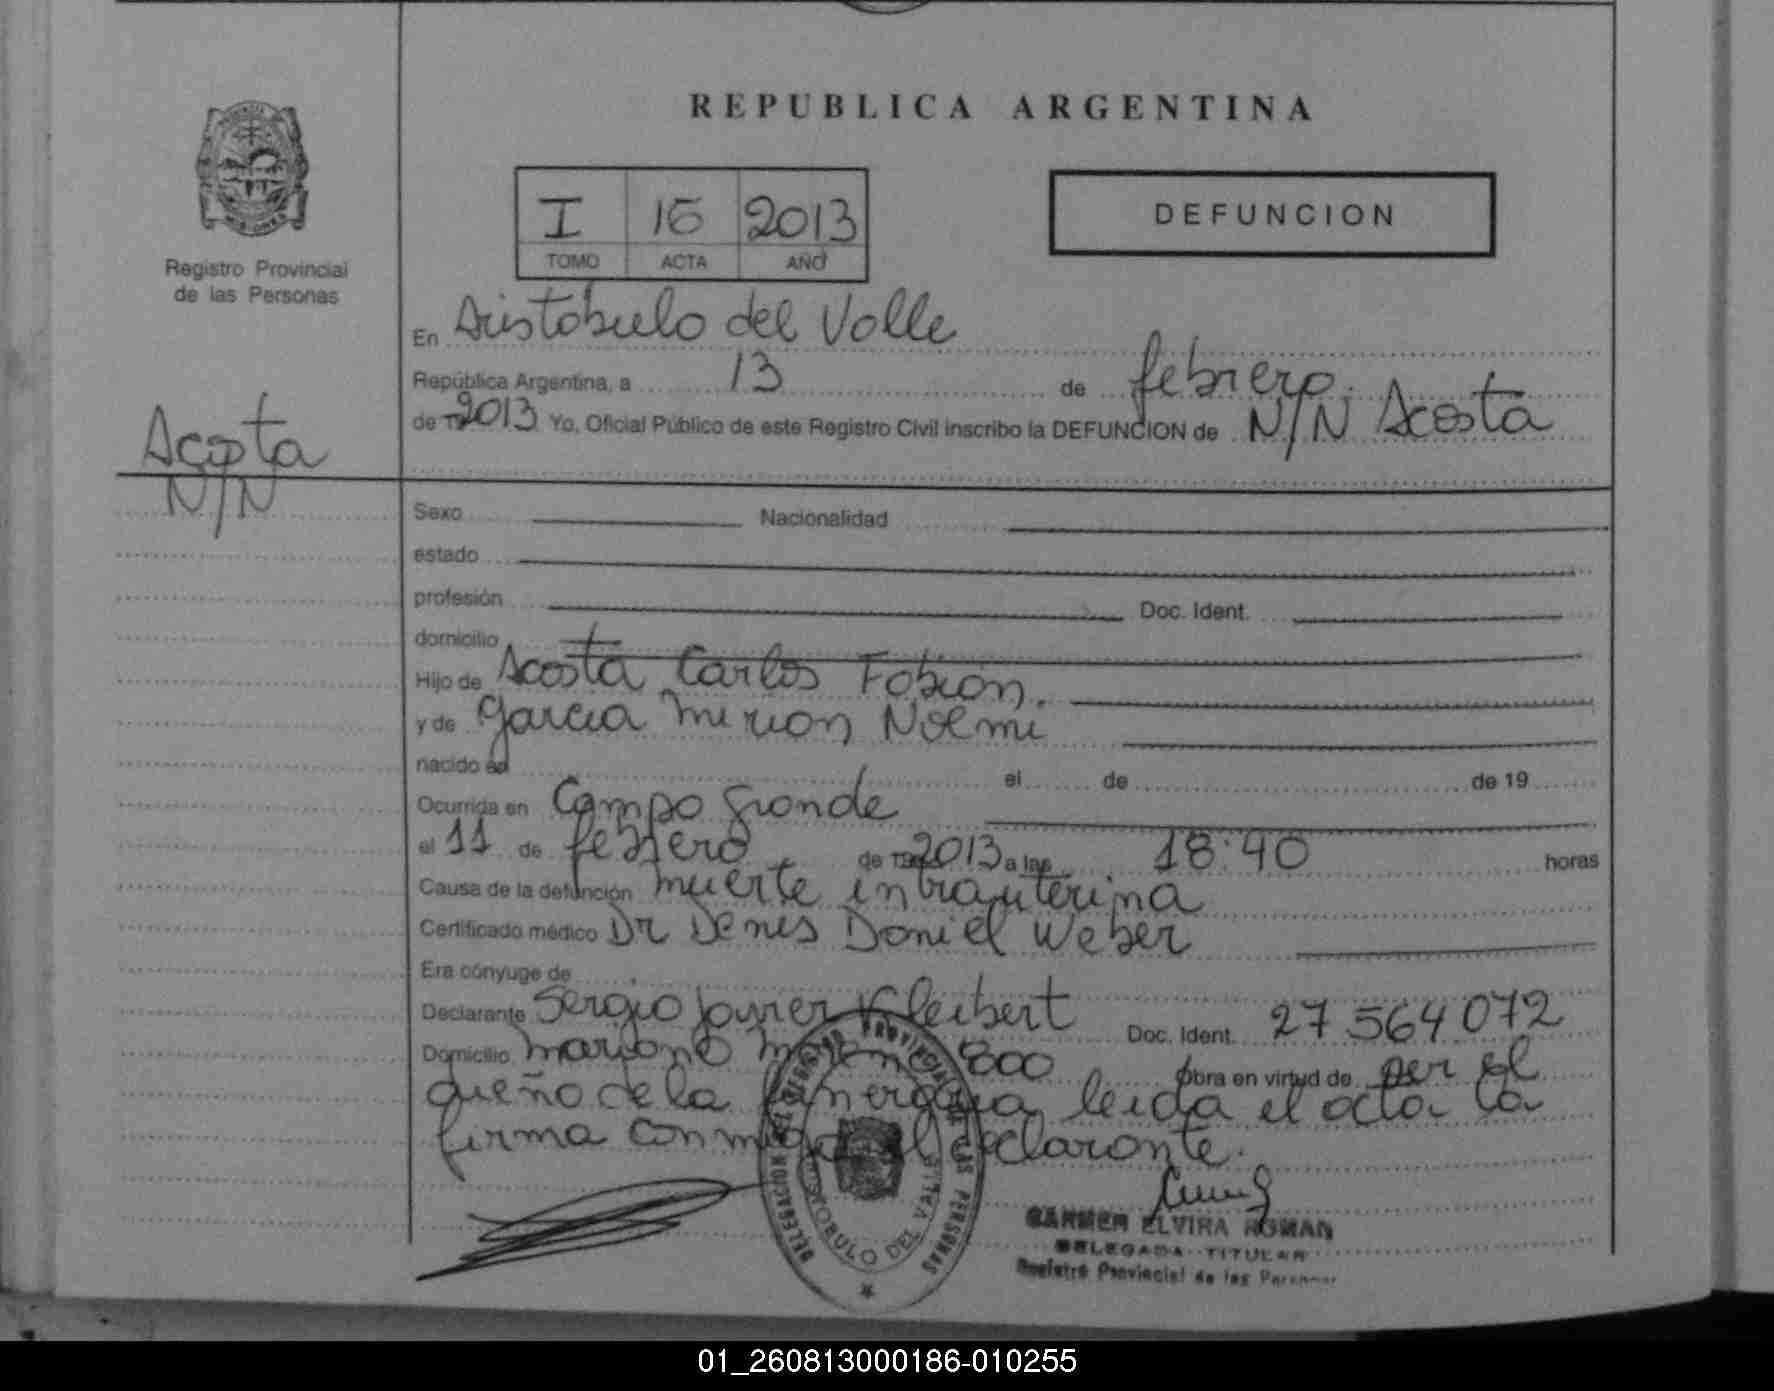 REPUBLICA ARGENTINA
I 16 2013
TOMO ACTA AÑO
DEFUNCION
Registro Provincial
de las Personas
En Aristobulo del Valle
República Argentina, a 13 de febrero.
de 2013 Yo, Oficial Público de este Registro Civil inscribo la DEFUNCION de N/N Acosta
Acosta
N/N
Sexo Nacionalidad
estado
profesión Doc. Ident.
domicilio
Hijo de Acosta Carlos Fabian.
y de Garcia Mirian Noemi
nacido en el de de 19
Ocurrida en Campo Grande
el 11 de febrero de 19 2013 a las 18:40 horas
Causa de la defunción muerte intrauterina
Certificado médico Dr Denis Daniel Weber
Era cónyuge de
Declarante Sergio Javier Kleibert Doc. Ident. 27 564 072
Domicilio Mariano Moreno 800 Obra en virtud de ser el
dueño de la funeraria leida el acta la
firma conmigo el declarante.
DELEGACION REGISTRO PROVINCIAL DE LAS PERSONAS
ARISTOBULO DEL VALLE
CARMEN ELVIRA ROMAN
DELEGADA TITULAR
Registro Provincial de las Personas
01_260813000186-010255